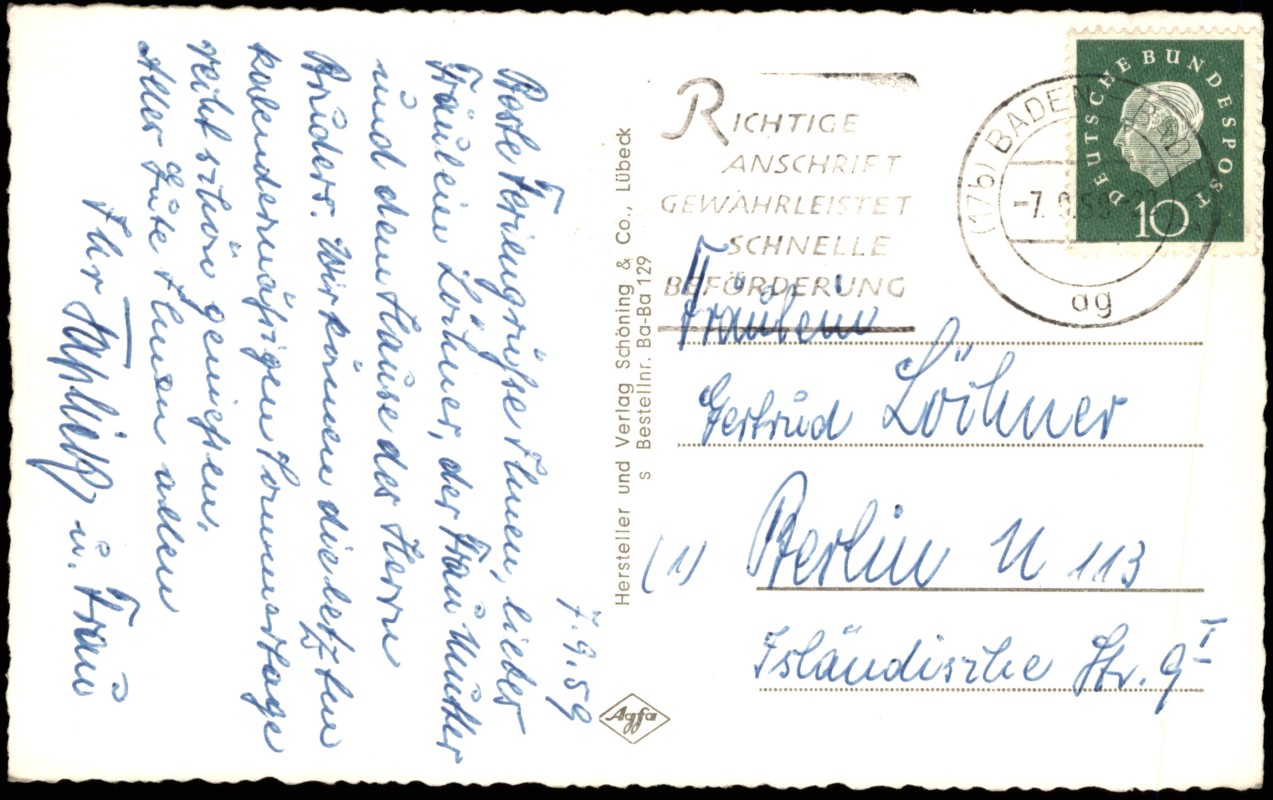 7.9.59
Beste Feriengrüße Ihnen, liebes
Fräulein Löhner, der Frau Mutter
und dem Hause des Herrn
Bruders. Wir können die letzten
kalendermäßigen Sommertage
recht schön genießen.
Alles Gute Ihnen allen
Ihr
u. Frau
Hersteller und Verlag Schöning & Co., Lübeck
s Bestellnr. Ba-Ba 129
Agfa
RICHTIGE
ANSCHRIFT
GEWÄHRLEISTET
SCHNELLE
BEFÖRDERUNG
(17b) BADEN-BADEN
-7.9.59
ag
DEUTSCHE BUNDESPOST
10
Fräulein
Gertrud Löhner
(1) Berlin N 113
Isländische Str. 9 I